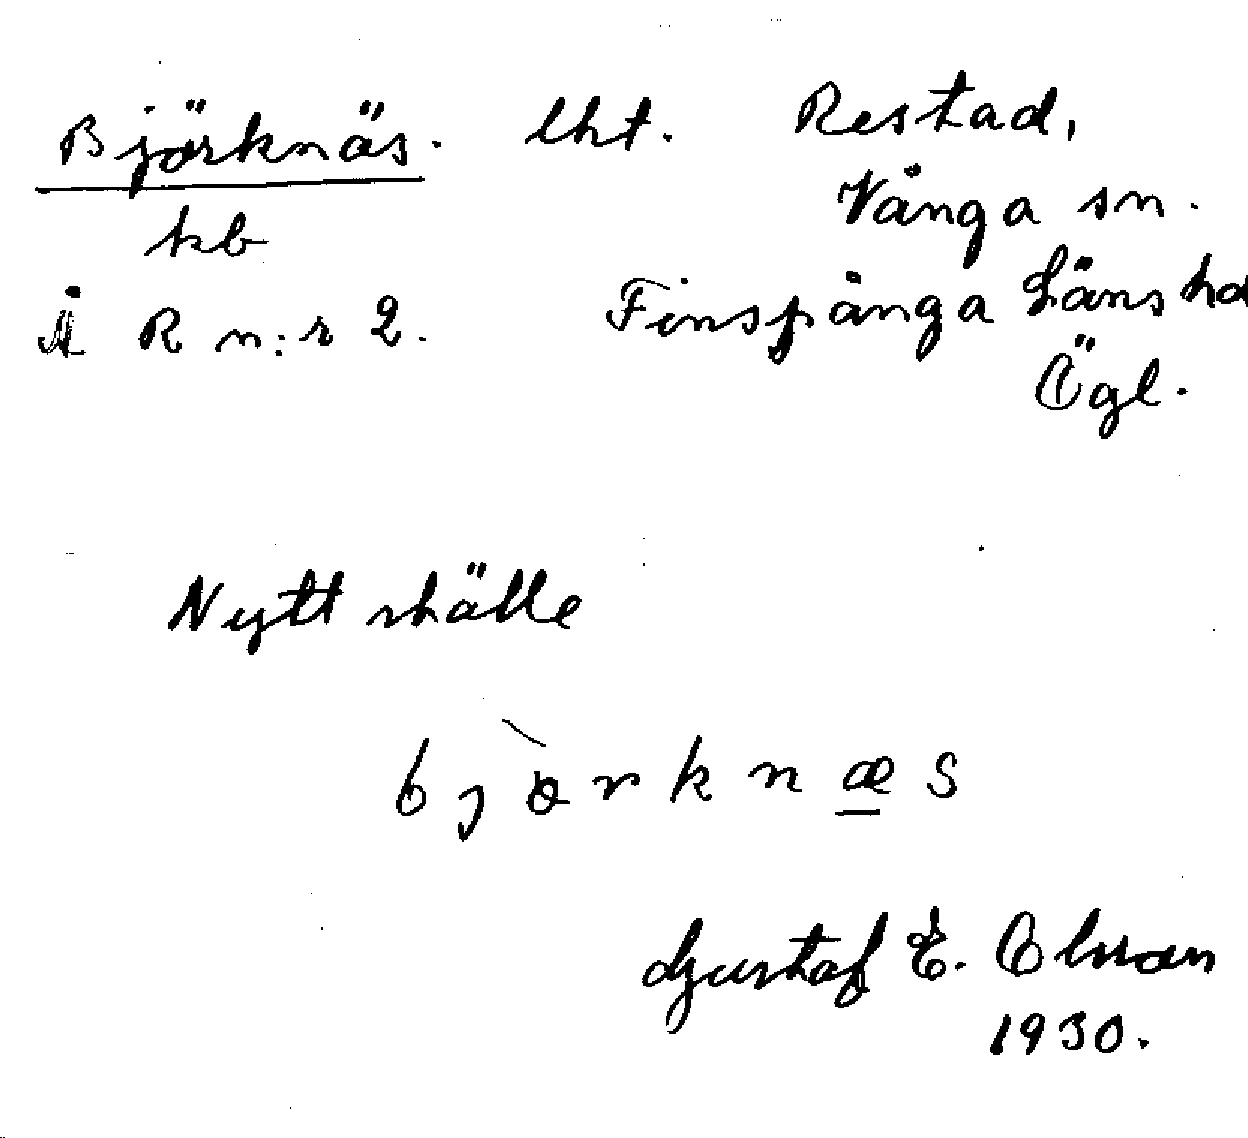 Björknäs. lht. Restad,
Vånga sn.
kb
Å R n:r 2. Finspånga Läns hd
Ögl.
Nytt ställe
bjòrknæs
Gustaf E. Olsson
1930.